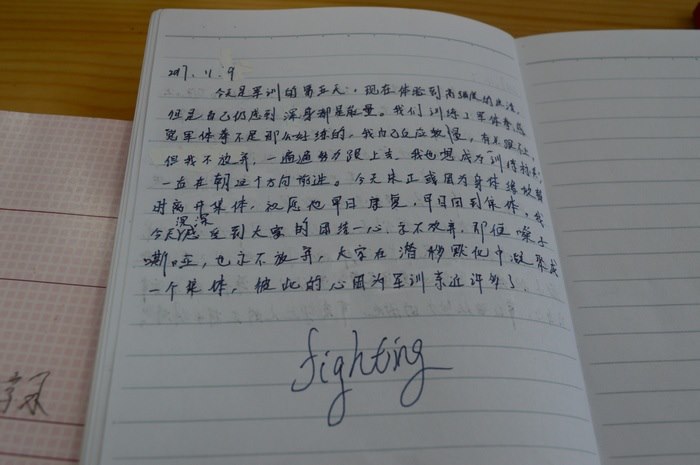 2017.11.9
今天是军训的第五天，现在体验到高强度的生活，
但是自己仍感到浑身都是能量。我们训练了军体拳，感
觉军体拳不是那么好练的，我自己反应较慢，有点跟不上，
但我不放弃，一遍遍努力跟上去，我也想成为训得
一直在朝这个方向前进。今天朱正彧因为身体缘故
时离开集体，祝愿他早日康复，早日回到集体。我
今天深深感受到大家的团结一心，永不放弃，即使嗓子
嘶哑，也永不放弃，大家在潜移默化中凝聚成
一个集体，彼此的心因为军训亲近许多了。
fighting
录